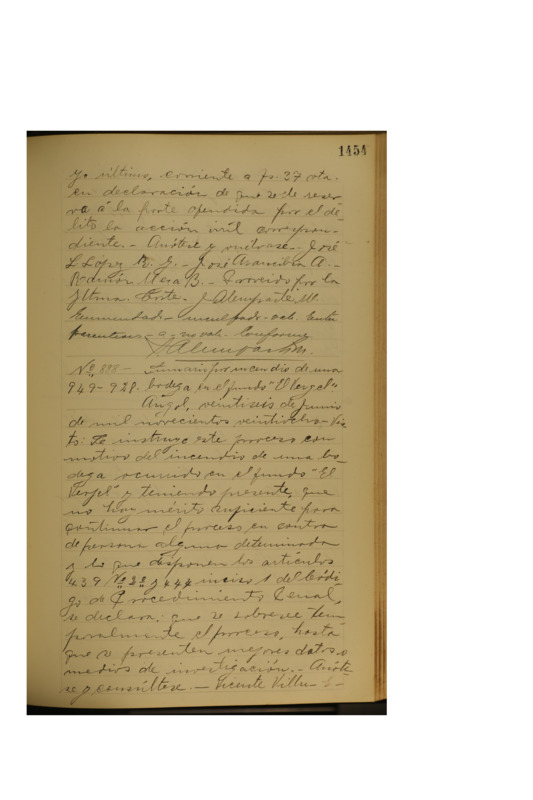 1454
yo último, corriente a fs. 37 vta.
en declaración de que se le reser
va á la parte ofendida por el de-
lito la acción civil correspon-
diente.- Anótese y vuélvase.- José
L López R. G. - José Arancibia A. -
Ramón Mera B. - Proveído por la
Iltma. Corte. - J. Alemparte, 
Enmendado - inculpado - vale. Entre
- a - no vale. Conforme
J. Alemparte
No 888 - Sumario por incendio de una
949-928. bodega en el fundo "El Vergel"
Angol, veintiseis de Junio
de mil novecientos veintiocho. Vis
tos: Se instruyó este proceso con
motivo del incendio de una bo-
dega ocurrido en el fundo "El
Vergel" y teniendo presente, que
no hay mérito suficiente para
continuar el proceso en contra
de persona alguna determinada
y lo que disponen los artículos
439 No 2º y 444 inciso 1 del Códi
go de Procedimiento Penal,
se declara: que se sobresee tem
poralmente el proceso, hasta
que se presenten mejores datos o
medios de investigación.- Anóte-
se y consúltese. - Vicente Villu-